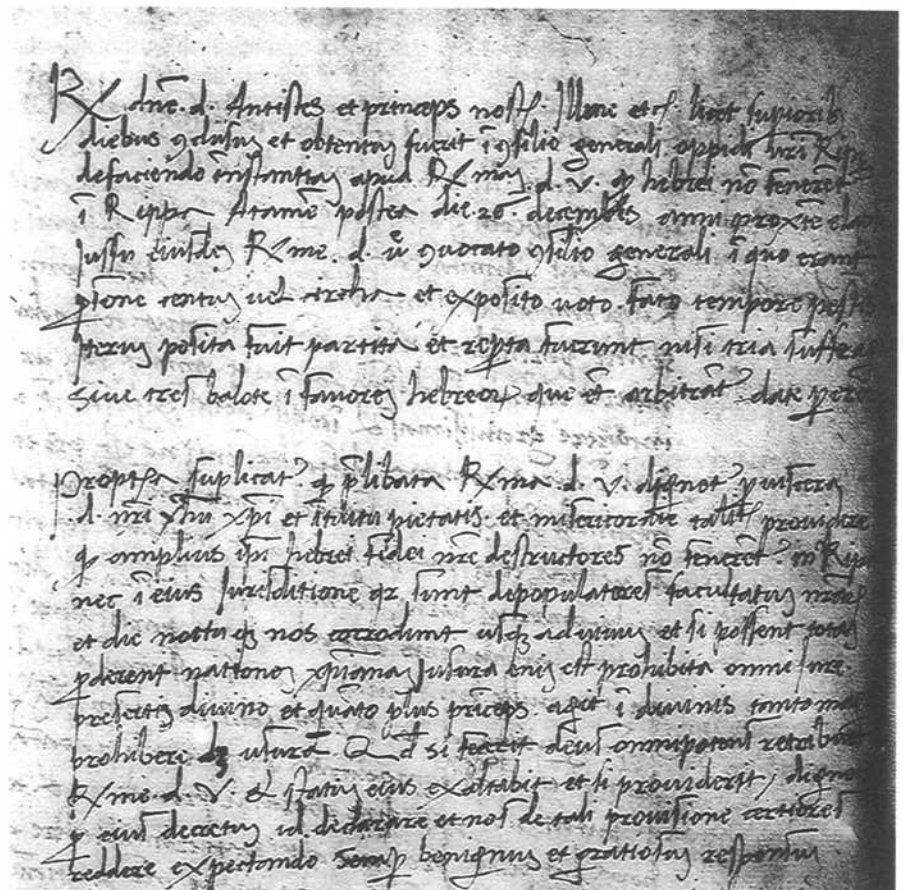 Rx dne. d. Antistes et princeps nost. Illme etc. licet superiorib
diebus 9clusuz et obtentuz fuerit i 9silio generali oppidi nri Rip
defaciendo instantiaz apud Rx maz. d. v. qp hebrei no feneret
i Rippa Attame postea die. 26. decembris anni proxie
Jussu eiusdez Rxme. d. v 9uocato 9silio generali i quo erant
psone centuz uel circha et exposito uoto facto tempore pestis
Iteruz posita fuit partita et repta fuerunt nisi tria suffra
siue tres balote i fauorez hebreor que et arbitrat date p
Propterea suplicat. qp plibata Rxma. d. v. dignet p uiscera
d. nri yhu xpi et ituitu pietatis et misericordie talit prouidere
qp amplius ipi hebrei fidei nre destructores no feneret in Rip
nec i eius Jurisditione qr sunt depopulatores facultatuz nrar
et die nottuqz nos corrodunt usqz ad uiuuz et si possent totaz
pderent nationez xpianaz Usura eniz est prohibita omni iure
presertiz diuino et quato plus princeps agit i diuinis tanto ma
prohibere dz usura Qd si fecerit deus omnipotens retribuet
Rxme. d. V. & statuz eius exaltabit et si prouiderit, digne
p eius decretuz id declarare et nos de tali prouisione certiores
reddere expectando semp benignuz et gratiosuz responsuz